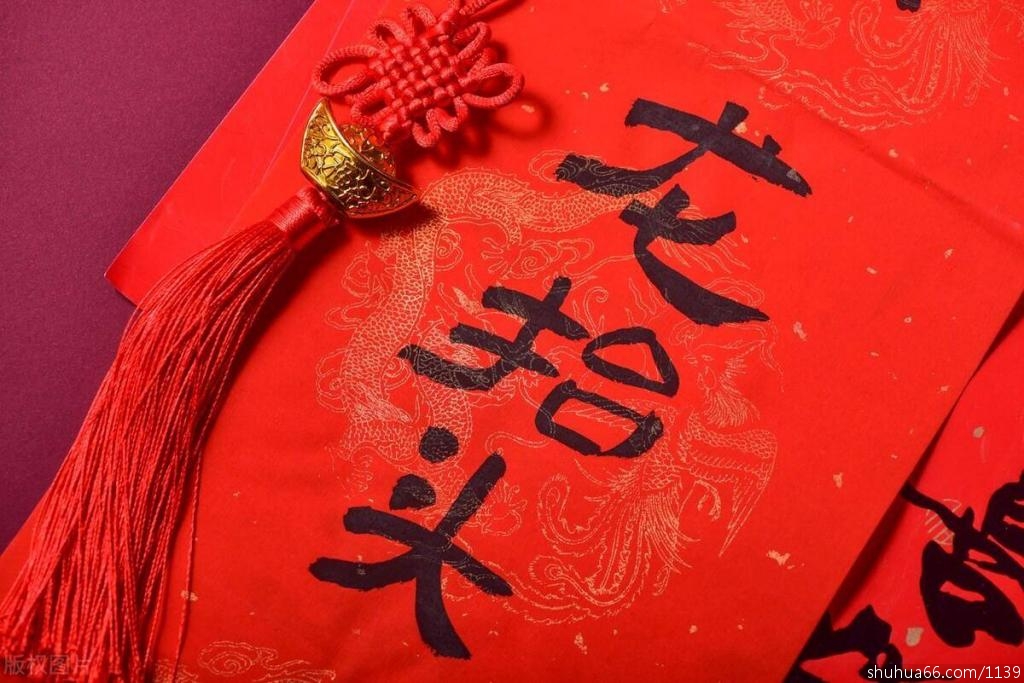 龙抬头
版权图片
shuhua66.com/1139